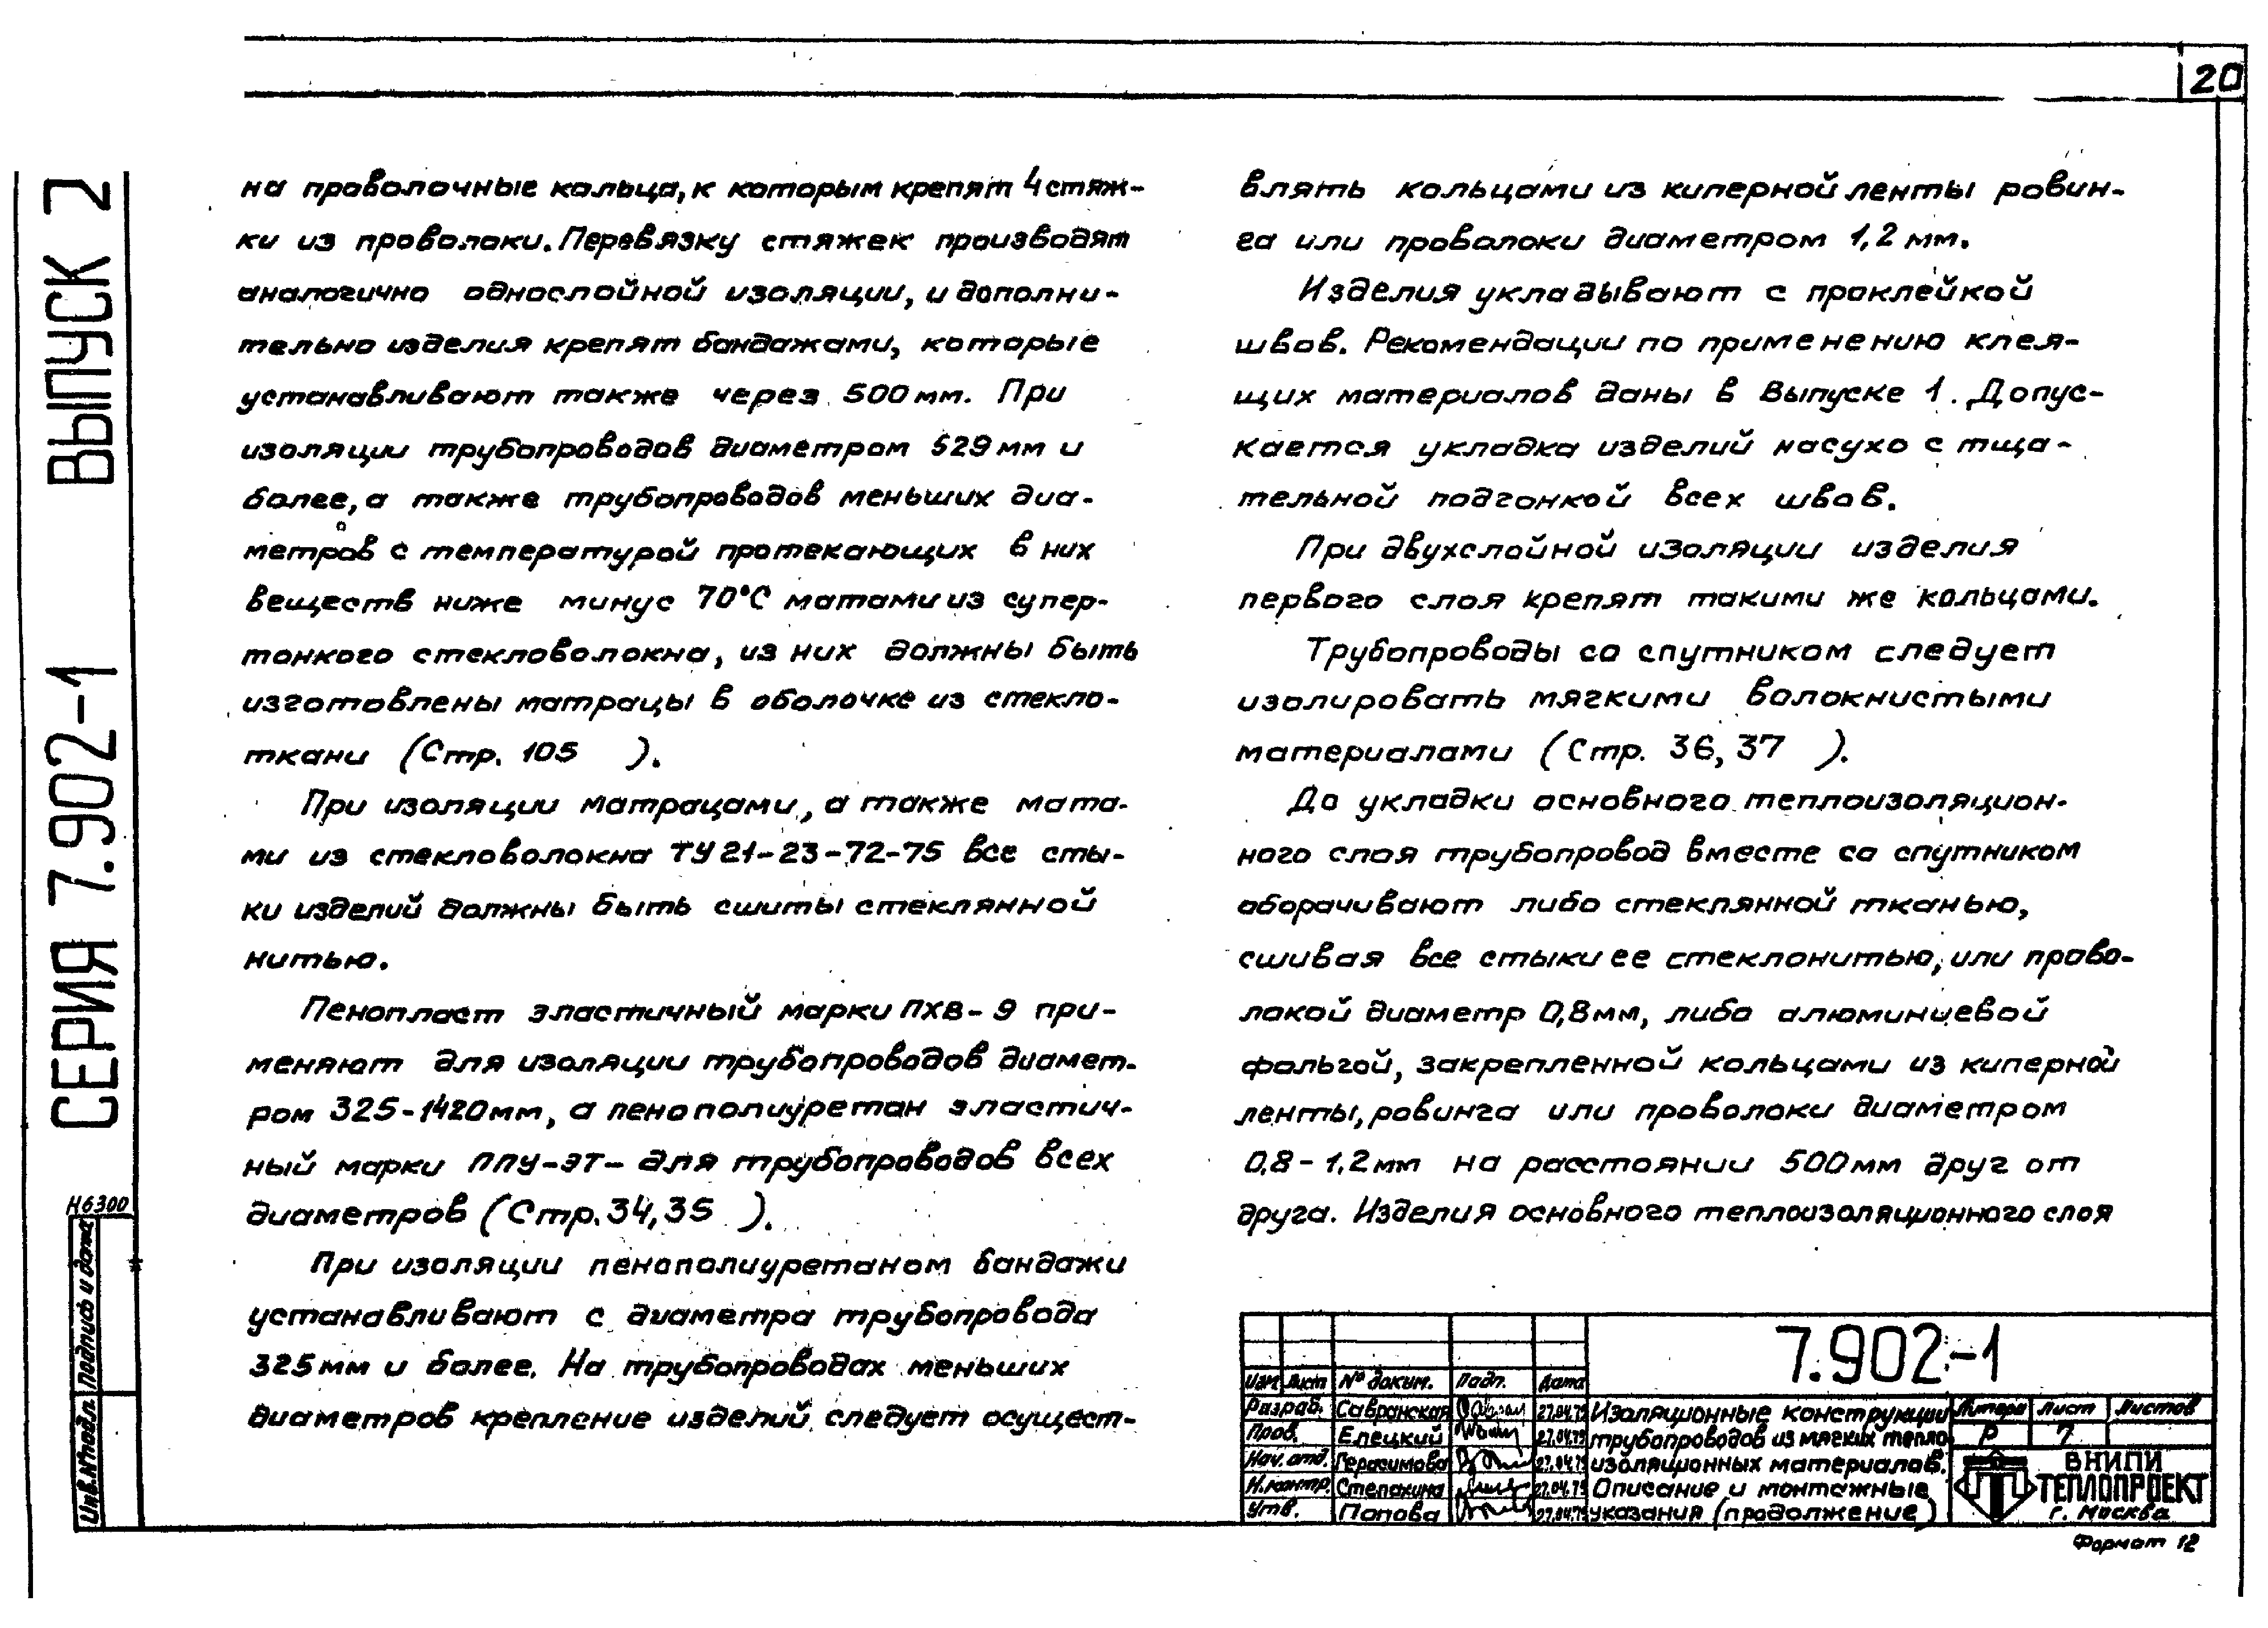 20
СЕРИЯ 7.902-1 ВЫПУСК 2
на проволочные кольца, к которым крепят 4 стяж-
ки из проволоки. Перевязку стяжек производят
аналогично однослойной изоляции, и дополни-
тельно изделия крепят бандажами, которые
устанавливают также через 500 мм. При
изоляции трубопроводов диаметром 529 мм и
более, а также трубопроводов меньших диа-
метров с температурой протекающих в них
веществ ниже минус 70°С матами из супер-
тонкого стекловолокна, из них должны быть
изготовлены матрацы в оболочке из стекло-
ткани (Стр. 105 ).
При изоляции матрацами, а также мата-
ми из стекловолокна ТУ 21-23-72-75 все сты-
ки изделий должны быть сшиты стеклянной
нитью.
Пенопласт эластичный марки ПХВ-9 при-
меняют для изоляции трубопроводов диамет-
ром 325-1420мм, а пенополиуретан эластич-
ный марки ППУ-ЭТ- для трубопроводов всех
диаметров (Стр. 34, 35 ).
При изоляции пенополиуретаном бандажи
устанавливают с диаметра трубопровода
325 мм и более. На трубопроводах меньших
диаметров крепление изделий следует осущест-
влять кольцами из киперной ленты ровин-
га или проволоки диаметром 1,2 мм.
Изделия укладывают с проклейкой
швов. Рекомендации по применению клея-
щих материалов даны в Выпуске 1. Допус-
кается укладка изделий насухо с тща-
тельной подгонкой всех швов.
При двухслойной изоляции изделия
первого слоя крепят такими же кольцами.
Трубопроводы со спутником следует
изолировать мягкими волокнистыми
материалами (Стр. 36, 37 ).
До укладки основного теплоизоляцион-
ного слоя трубопровод вместе со спутником
оборачивают либо стеклянной тканью,
сшивая все стыки ее стеклонитью, или прово-
локой диаметр 0,8мм, либо алюминиевой
фольгой, закрепленной кольцами из киперной
ленты, ровинга или проволоки диаметром
0,8-1,2мм на расстоянии 500мм друг от
друга. Изделия основного теплоизоляционного слоя
Н6300
Подпис и дата
Инв.№подл.
7.902-1
Изм Лист № докум. Подп. Дата
Разраб. Савранская 27.04.79
Пров. Елецкий 27.04.79
Нач. отд. Герасимова 27.04.79
Н.контр. Степахина 27.04.79
Утв. Попова 27.04.79
Изоляционные конструкции
трубопроводов из мягких тепло-
изоляционных материалов.
Описание и монтажные
указания (продолжение)
Литера Лист Листов
Р 7
ВНИПИ
ТЕПЛОПРОЕКТ
г. Москва
Формат 12